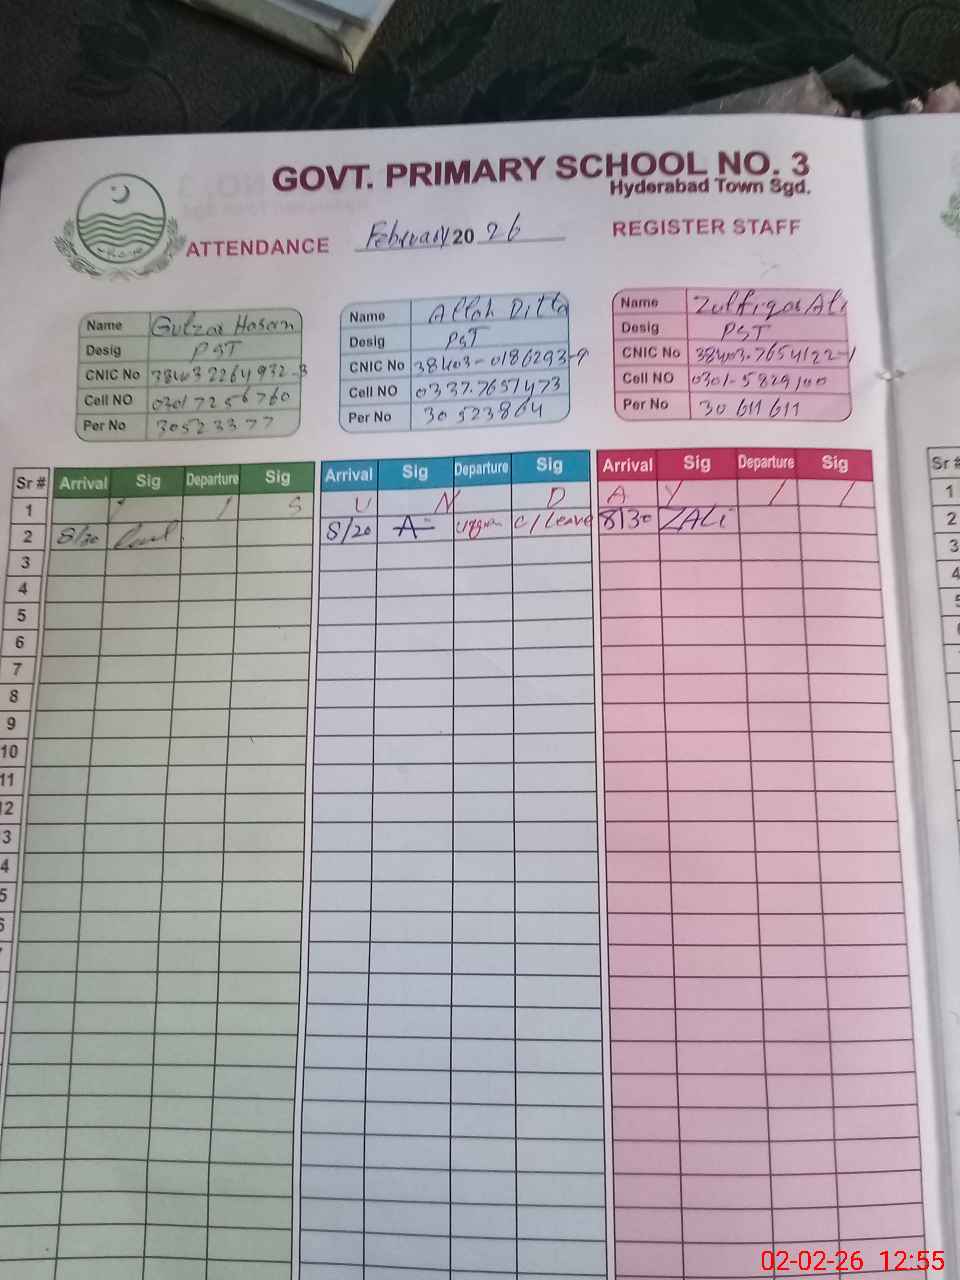 GOVT. PRIMARY SCHOOL NO. 3
Hyderabad Town Sgd.
ATTENDANCE February 2026 REGISTER STAFF
Name Gulzar Hasan
Desig PST
CNIC No 38403 2264932-3
Cell NO 0301 7256760
Per No 30523377
Name Allah Ditta
Desig PST
CNIC No 38403-0186293-9
Cell NO 0337.7651473
Per No 30523864
Name Zulfiqar Ali
Desig PST
CNIC No 38403.7654122-1
Cell NO 0301-5829100
Per No 30611611
Sr # Arrival Sig Departure Sig Arrival Sig Departure Sig Arrival Sig Departure Sig Sr #
1 S U N D A Y 1
2 8/20 8/20 A c/Leave 8/30 ZALi 2
3 3
4 4
5 5
6
7
8
9
10
11
12
3
4
5
02-02-26 12:55